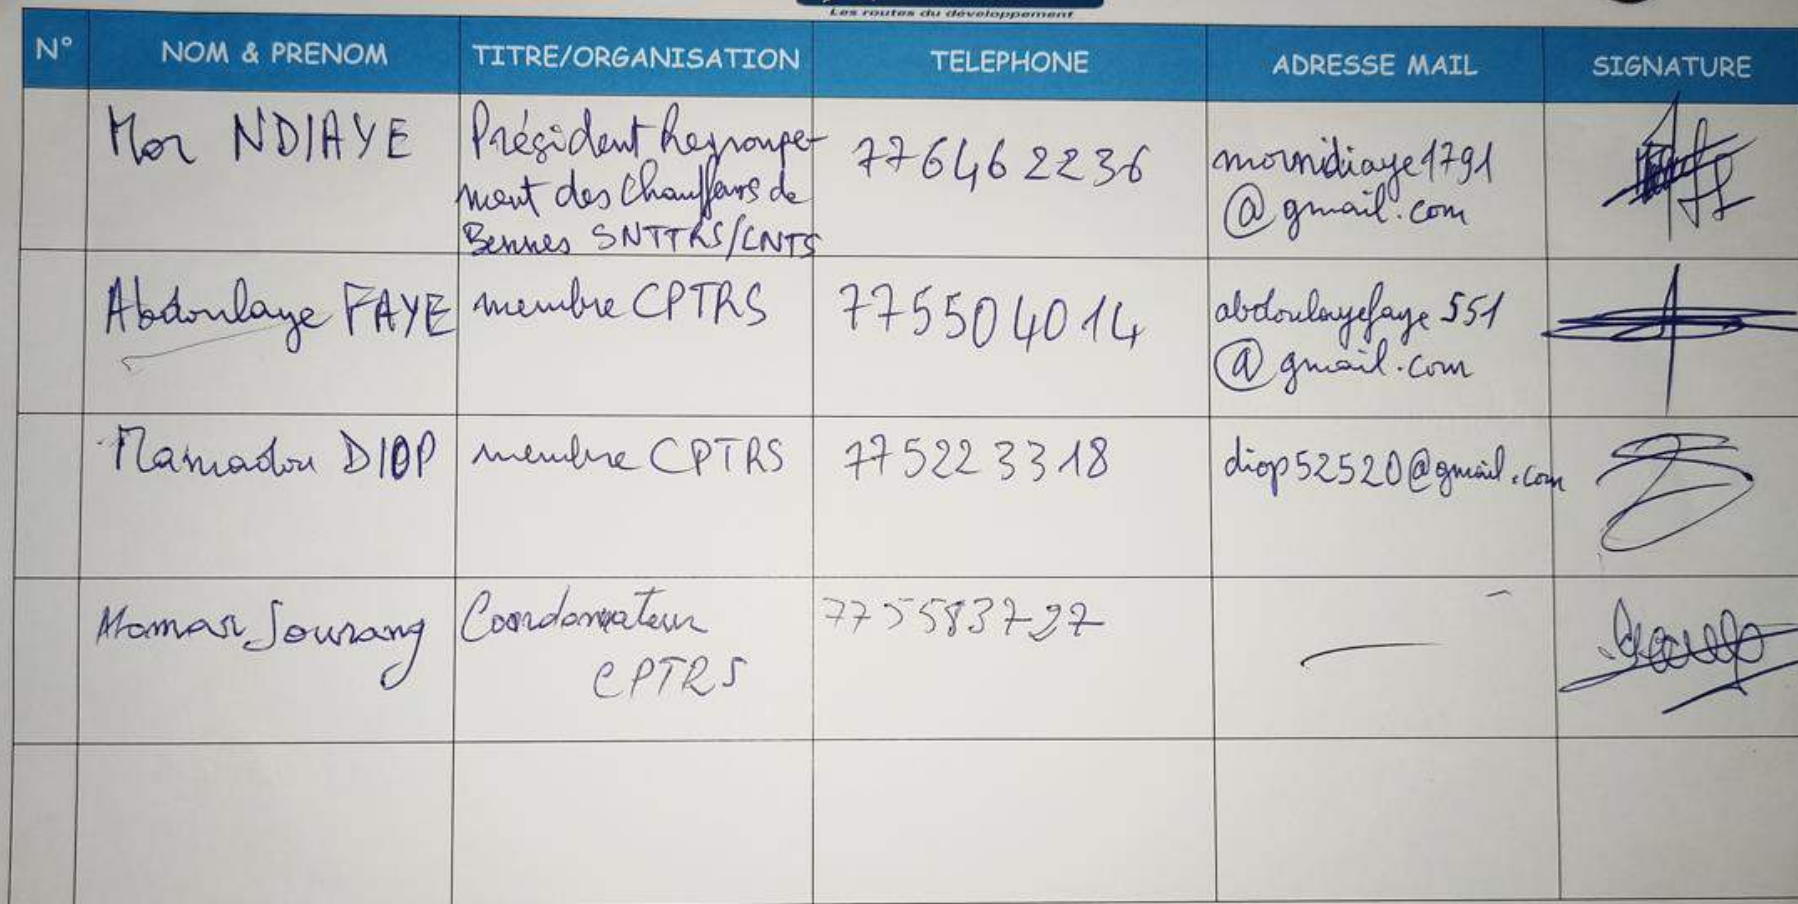 Les routes du développement
N° NOM & PRENOM TITRE/ORGANISATION TELEPHONE ADRESSE MAIL SIGNATURE
Mor NDIAYE Président Regroupe-
ment des Chauffeurs de
Bennes SNTTRS/CNTS
776462236
mornidiaye1791
@gmail.com
Abdoulaye FAYE membre CPTRS 775504014 abdoulayefaye551
@gmail.com
Mamadou DIOP membre CPTRS 775223318 diop52520@gmail.com
Momar Sourang Coordonnateur
CPTRS
775583727